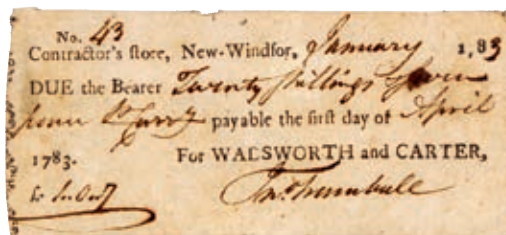 No. 43
Contractor's store, New-Windsor, January 1, 83
DUE the Bearer Twenty shillings seven
pence payable the first day of April
1783. For WADSWORTH and CARTER,
Jno. Trumbull